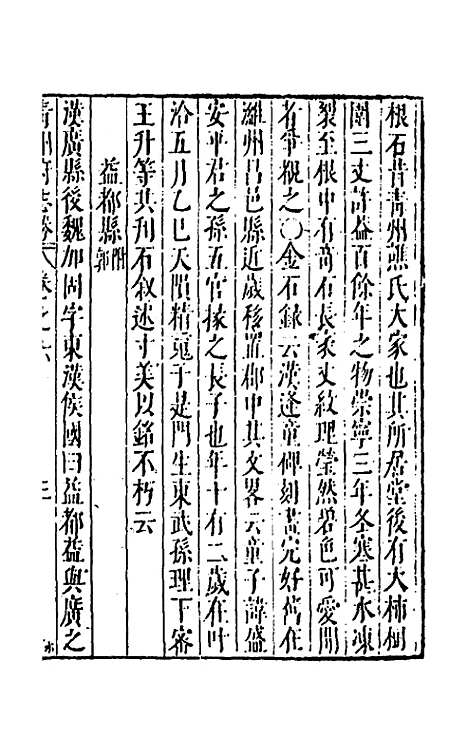 根石昔青州譙氏大家也其所居堂後有大柿樹
圍三丈許葢百餘年之物崇寧三年冬寒甚木凍
裂至根中有竒石長數丈紋理瑩然碧色可愛聞
者爭觀之○金石錄云漢逢童碑刻畫完好舊在
濰州昌邑縣近歲移置郡中其文畧云童子諱盛
安平君之孫五官掾之長子也年十有二歲在叶
洽五月乙巳天隕精㝹于是門生東武孫理下密
王升等共刋石叙述寸美以銘不朽云
益都縣附郭
漢廣縣後魏加固字東漢侯國曰益都益與廣之
青州府志 卷之六 三